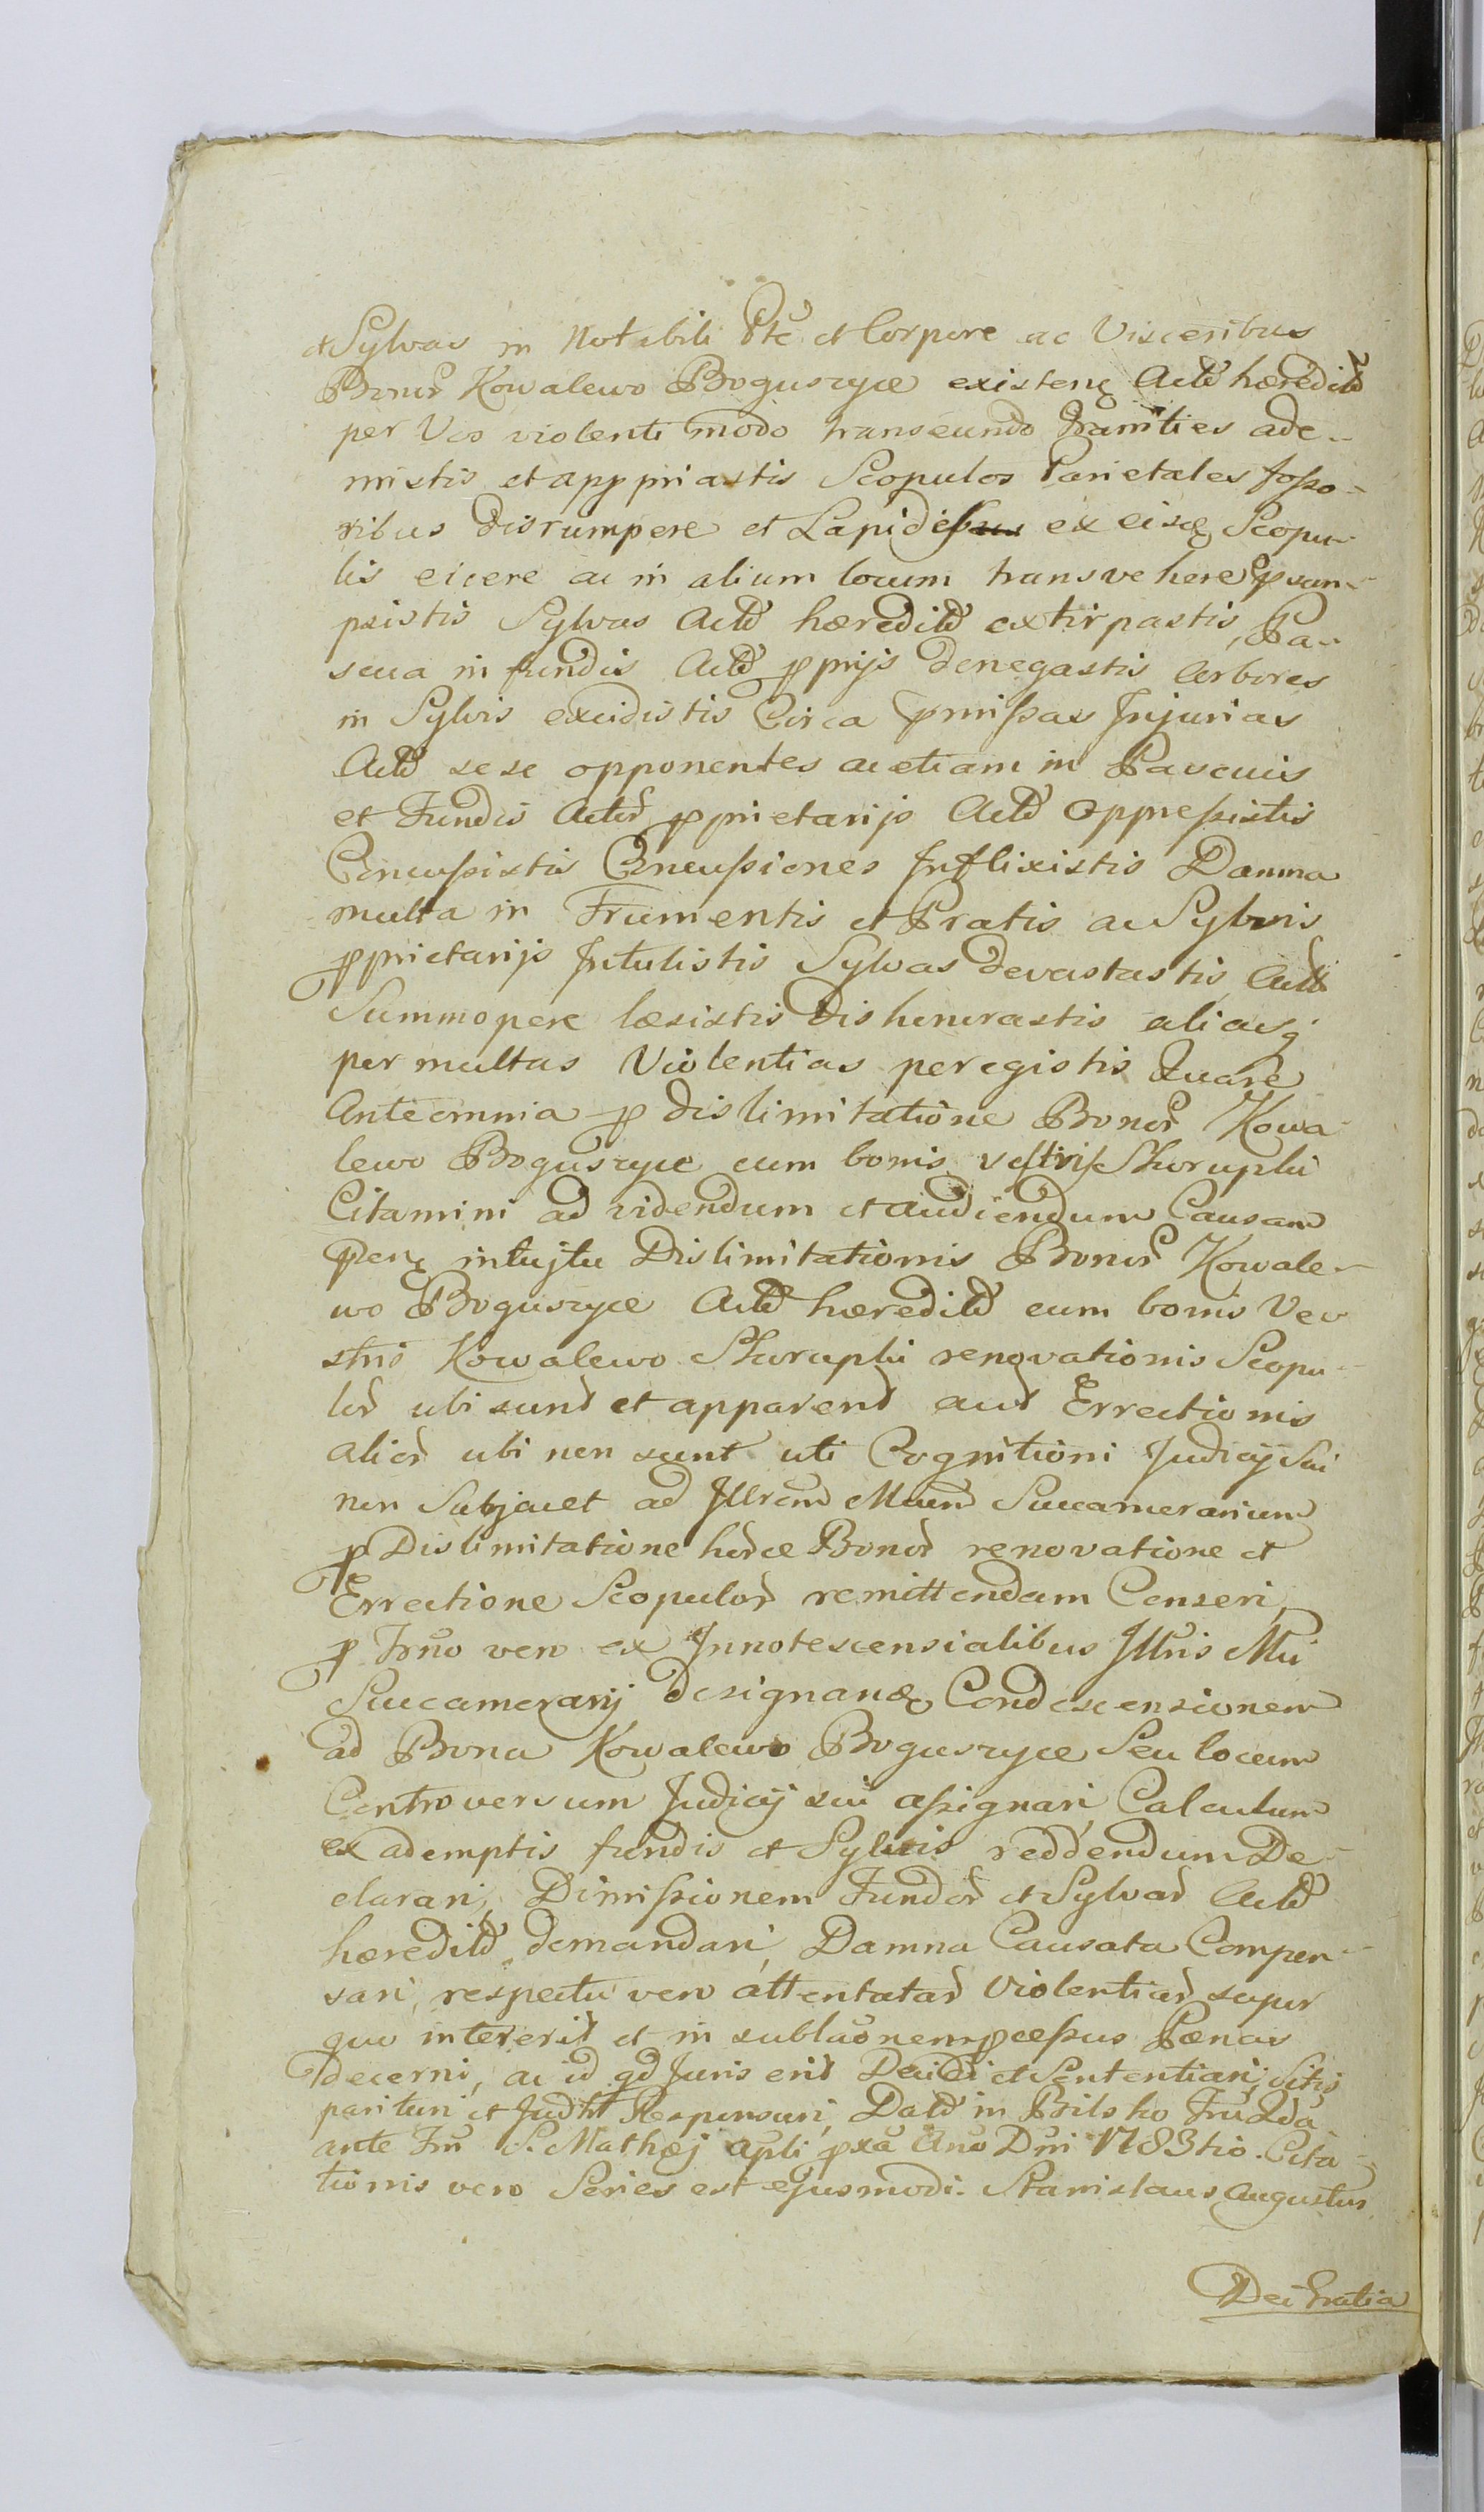 et Sylvas in Notabili Pte et Corpore ac Visceribus
Bonor Kowalewo Bogusrzyce existen Actor hæredit
per Vos violenti modo transeundo Gramities ade-
mistis et appriastis Scopulos Parietales fosso-
ribus disrumpere et Lapides ex eisd Scopu-
lis eicere ac in alium locum transvehere præsum-
psistis Sylvas Actor hæredit extirpastis, Pa-
scua in fundis Actor pprijs denegastis Arbores
in Sylvis excidistis Circa præmissas Injurias
Actor sese opponentes ac etiam in Pascuis
et Fundis Actor pprietarijs Actor oppressistis
Concussistis Concussiones Inflixistis Damna
multa in Frumentis et Pratis ac Sylvis
pprietarijs Intulistis Sylvas devastastis Actor
Summopere læsistis dishonorastis aliasq
per multas Violentias peregistis Quare
Ante omnia p dislimitatione Bonor Kowa-
lewo Bogusryce cum bonis vestris Skoruplii
Citamini ad videndum et audiendum Causam
præn intujtu Dislimitationis Bonor Kowale-
wo Bogusryce Actor hæredit cum bonis Ve-
stris Kowalewo Skoruplii renovationis Scopu-
lor ubi sunt et apparent aut Errectionis
alior ubi non sunt uti Cognitioni Judicij Sui
non Subjacet ad Illrem Mcum Succamerarium
p Dislimitatione horce Bonor renovatione et
Errectione Scopulor remittendam Censeri,
p Trno vero ex Innotescensialibus Illris Mci
Succamerarij designan Condescensionem
ad Bona Kowalewo Bogusryce Seu locum
Controversum Judicij sui assignari, Calculum
ex ademptis fundis et Sylvis reddendum De-
clarari, Dimissionem Fundor et Sylvar Actor
hæredit demandari, Damna Causata Compen-
sari, respectu vero attentatar Violentiar super
quo intererit et in sublaonem pcessus Pænas
decerni, ac id qd Juris erit Decidi et Sententiari, Sitis
parituri et Judlit Responsuri, Dat in Bilsko Fria 2da
ante Fm S. Mathæj apli pxa Ano Dni 1783tio. Cita-
tionis vero Series est ejusmodi. Stanislaus Augustus
Dei Gratia